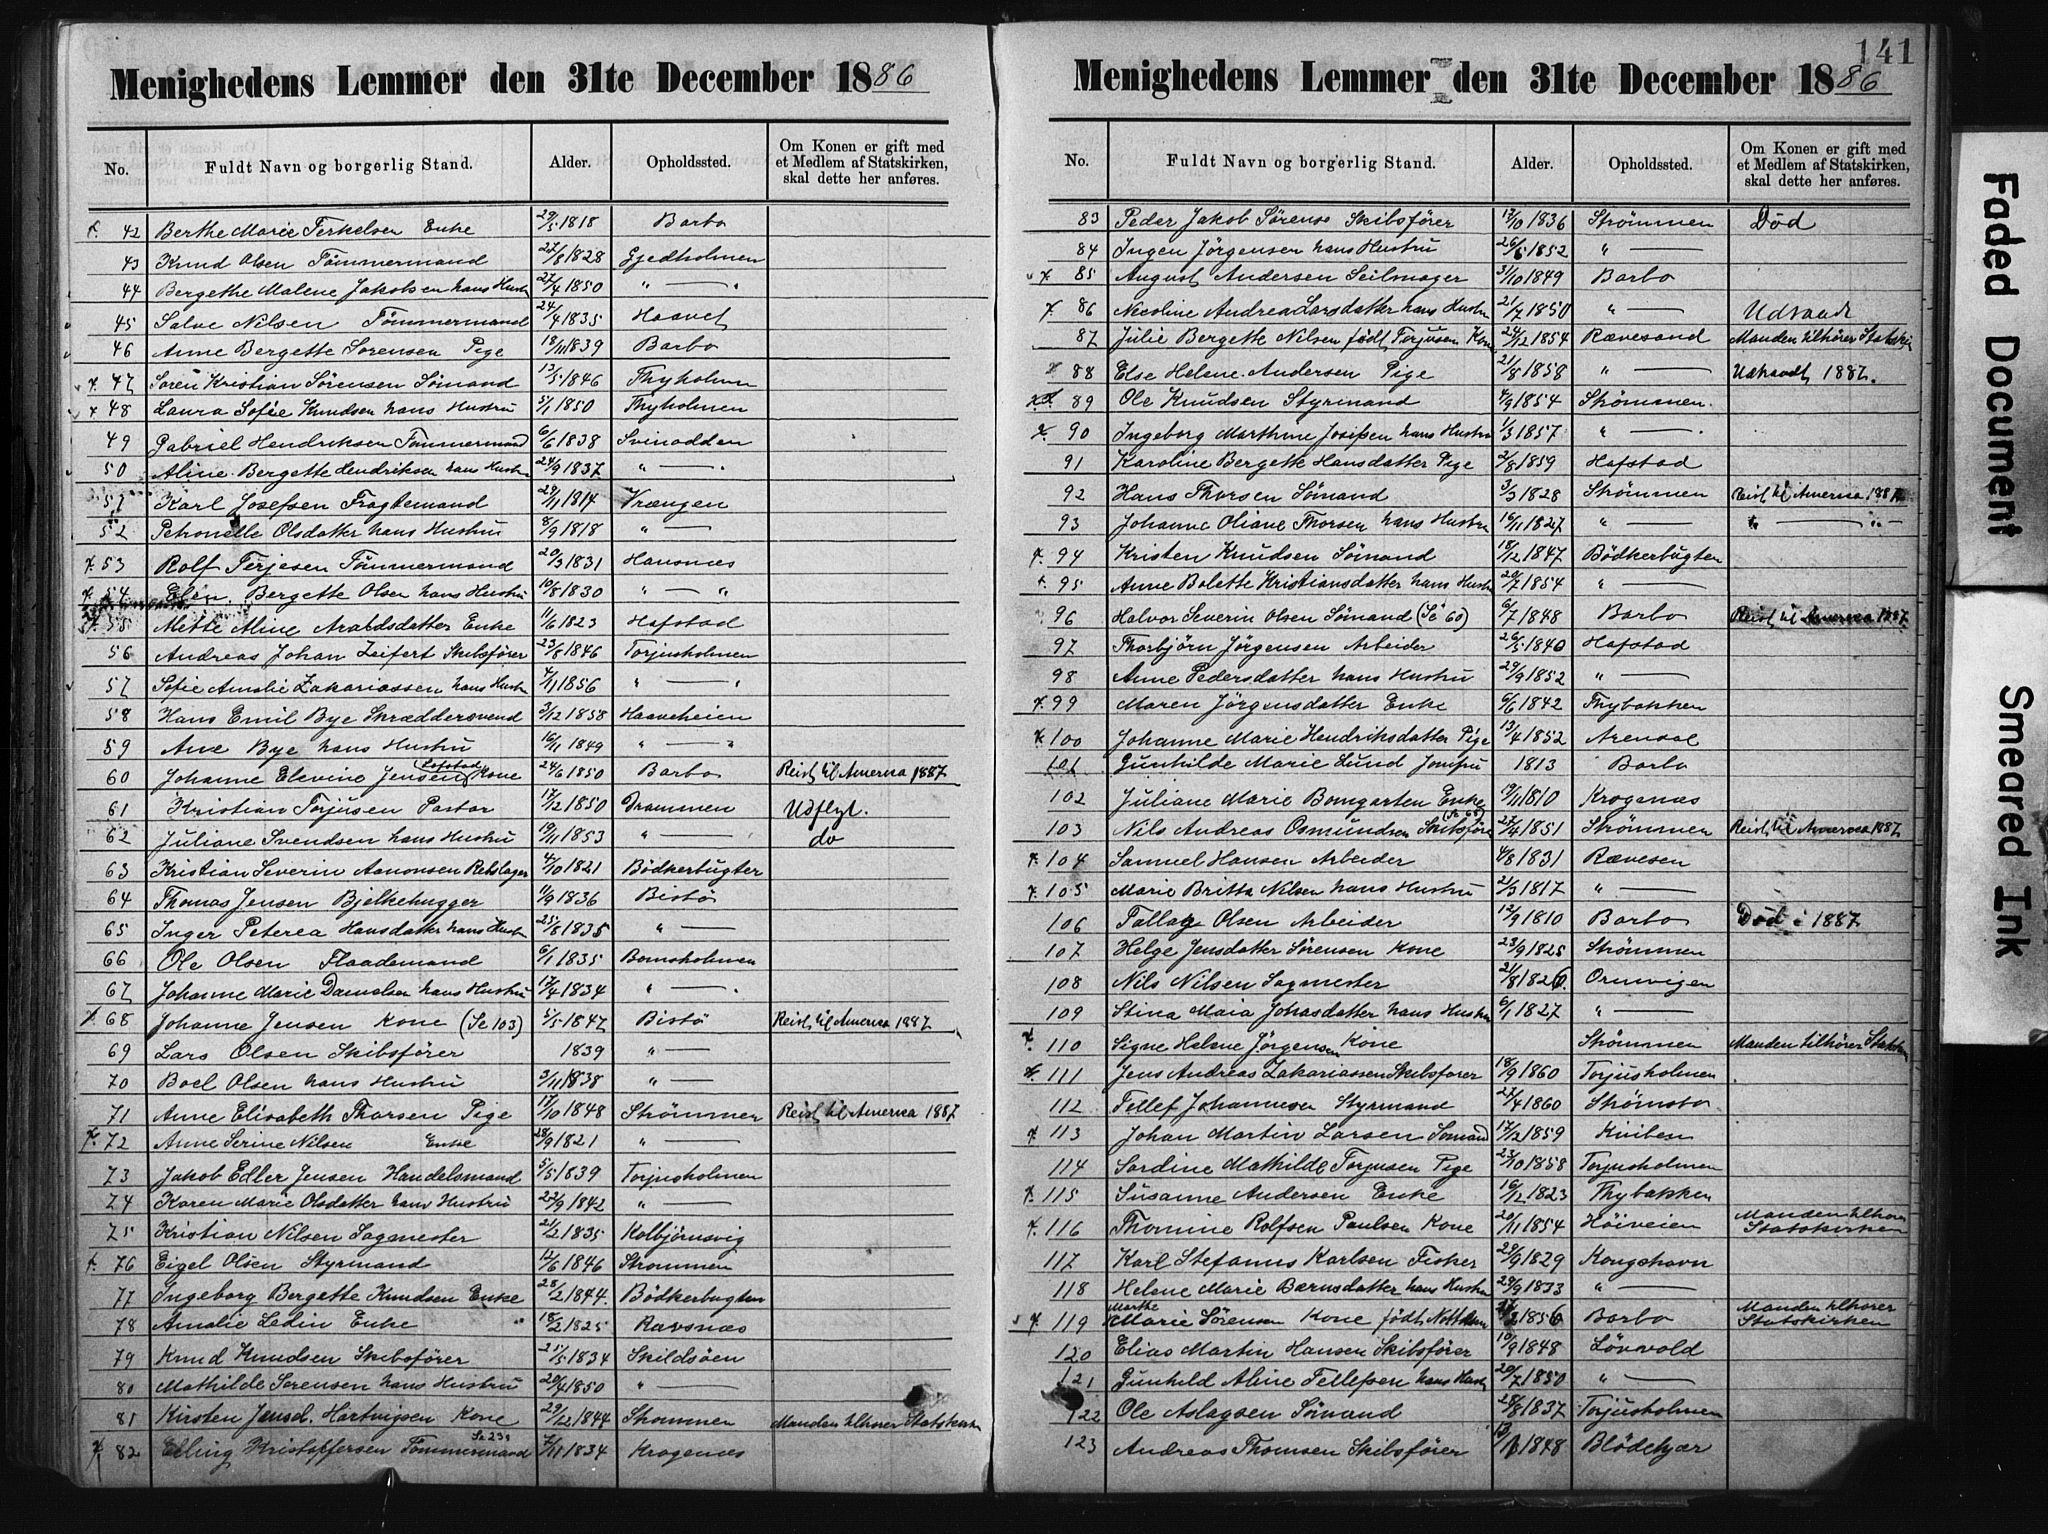 Menighedens Lemmer den 31te December 1886
No. Fuldt Navn og borgerlig Stand. Alder. Opholdssted. Om Konen er gift med et Medlem af Statskirken, skal dette her anføres.
42 Berthe Marie Terkelsen Enke 29/5 1818 Barbo
43 Knud Olsen Tømmermand 27/8 1828 Gjedholmen
44 Bergethe Malene Jakobsen hans Hustru 27/4 1850 " — "
45 Salve Nilsen Tømmermand 24/4 1835 Haavet
46 Anne Bergette Sørensen Pige 18/11 1839 Barbo
47 Søren Kristian Sørensen Sømand 13/5 1846 Thyholmen
48 Laura Sofie Knudsen hans Hustru 5/1 1850 Thyholmen
49 Gabriel Hendriksen Tømmermand 6/6 1838 Svinodden
50 Aline Bergette Hendriksen hans Hustru 24/9 1837 " — "
51 Karl Josefsen Fragtemand 29/11 1814 Vrængen
52 Petronelle Olsdatter hans Hustru 8/9 1818 " —
53 Rolf Terjesen Tømmermand 20/3 1831 Havsnæs
54 Elen Bergette Olsen hans Hustru 10/8 1830 " — "
55 Mette Aline Enke 11/6 1823 Hafstad
56 Andreas Johan Zeifert Skibsfører 23/8 1846 Torjusholmen
57 Sofie Amalie Zakariassen hans Hustru 4/11 1856 " — "
58 Hans Emil Bye Skræddersvend 3/12 1858 Haaveheien
59 Ane Bye hans Hustru 16/11 1849 " — "
60 Johanne Elevine Jensen Kone 24/6 1850 Barbo Reist til Amerca 1887
61 Kristian Torjusen Pastor 17/12 1850 Drammen Udflyt.
62 Juliane Svendsen hans Hustru 19/11 1853 " — do
63 Kristian Severin Aanonsen Rebslager 4/10 1821 Bødkerbugter
64 Thomas Jensen Bjelkehugger 11/9 1836 Bistø
65 Inger Peterea Hansdatter hans Hustru 25/8 1835 " —
66 Ole Olsen Flaademand 6/1 1835 Bomsholmen
67 Johanne Marie Danielsen hans Hustru 17/4 1834 " — "
68 Johanne Jensen Kone (Se 103) 5/5 1847 Bistö Reist til Amerca 1887
69 Lars Olsen Skibsfører 1839 " —
70 Boel Olsen hans Hustru 3/11 1838 " —
71 Anne Elisabeth Thorsen Pige 17/10 1848 Strømmen Reist til Amerca 1887
72 Anne Serine Nilsen Enke 28/9 1821 " —
73 Jakob Edler Jensen Handelsmand 5/5 1839 Torjusholmen
74 Karen Marie Olsdatter hans Hustru 22/9 1842 " —
75 Kristian Nilsen Sagmester 21/2 1835 Kolbjørnsvig
76 Eigel Olsen Styrmand 12/6 1846 Strømmen
77 Ingeborg Bergette Knudsen Enke 28/2 1844. Bödkerbugten
78 Amalie Ledin Enke 18/2 1825 Ravsnæs
79 Knud Knudsen Skibsfører 21/5 1834 Skildsöen
80 Mathilde Sørensen hans Hustru 20/4 1850 " —
81 Kirsten Jensd. Hartvigsen Kone 29/12 1844 Strømmen Manden tilhører Statskirken
82 Elling Kristoffersen Tømmermand 7/11 1834 Krogenæs
141
Menighedens Lemmer den 31te December 1886
No. Fuldt Navn og borgerlig Stand. Alder. Opholdssted. Om Konen er gift med et Medlem af Statskirken, skal dette her anføres.
83 Peder Jakob Sørense Skibsfører 17/10 1836 Strømmen Död
84 Ingen Jörgensen hans Hustru 26/6 1852 " —
85 August Andersen Seilmager 31/10 1849 Barbo
86 Nicoline Andrea Larsdatter hans Hustru 21/7 1850 " — Udtraadt
87 Julie Bergette Nilsen født Torjusen Kone 24/12 1854 Rævesand Manden tilhører Statskir
88 Else Helene Andersen Pige 21/8 1858 " — Udtraadt 1887.
89 Ole Knudsen Styrmand 4/9 1854 Strømmen.
90 Ingeborg Marthine Josefsen hans Hustru 1/3 1857 " — "
91 Karoline Bergette Hansdatter Pige 2/8 1859 Hafstad
92 Hans Thorsen Sømand 3/3 1828 Strømmen Reist til Amerca 1887
93 Johanne Oliane Thorsen hans Hustru 16/11 1827 " — " — " —
94 Kristen Knudsen Sømand 18/12 1847 Bødkerbugten
95 Anne Bolette Kristiansdatter hans Hustru 20/7 1854 " —
96 Halvor Severin Olsen Sømand (Se 60) 6/7 1848 Barbo Reist til Amerca 1887
97 Thorbjörn Jørgensen Arbeider 26/5 1840 Hafstad
98 Anne Pedersdatter hans Hustru 29/9 1852 " —
99 Maren Jörgensdatter Enke 6/6 1842 Thybakken
100 Johanne Marie Hendriksdatter Pige 13/4 1852 Arendal
101 Gunhilde Marie Lund Jomfru 1813 Barbo
102 Juliane Marie Bomgarten Enke 19/11 1810 Krogenæs
103 Nils Andreas Osmundsen Skibsføre (Se 68) 27/4 1851 Strømmen Reist til Amerca 1887
104 Samuel Hansen Arbeider 4/8 1831 Rævesen
105 Marie Britta Nilsen hans Hustru 21/3 1817 " —
106 Tallag Olsen Arbeider 12/9 1810 Barbo Död i 1887
107 Helge Jensdatter Sørensen Kone 23/9 1825 Strømmen
108 Nils Nilsen Sagmester 21/8 1826 Ornvigen
109 Stina Maia Johasdatter hans Hustru 6/1 1827 " —
110 Signe Helene Jørgensen Kone Strømmen Manden tilhører Statskir
111 Jens Andreas Zakariassen Skibsfører 18/9 1860 Torjusholmen
112 Tellef Johannesen Styrmand 27/4 1860 Strömsbo
113 Johan Martin Larsen Sømand 17/12 1859 Kviben
114 Sardine Mathilde Torjusen Pige 23/10 1858 Torjusholmen
115 Susanne Andersen Enke 16/12 1823 Thybakken
116 Thomine Rolfsen Paulsen Kone 20/11 1854 Höiveien Manden tilhører Statskirken
117 Karl Stefanus Karlsen Fisker 29/9 1829 Kongshavn
118 Helene Marie Bærnsdatter hans Hustru 29/9 1833 " —
119 Marthe Marie Sørensen Kone født 1856 Barbo Manden tilhører Statskirken
120 Elias Martin Hansen Skibsfører 10/9 1848 Lövvold
121 Gunhild Aline Tellefsen hans Hustr 20/7 1850 " —
122 Ole Aslagsen Sømand 28/8 1837 Torjusholmen
123 Andreas Thomsen Skibsfører 1848 Blödekjær
Faded Document
Smeared Ink